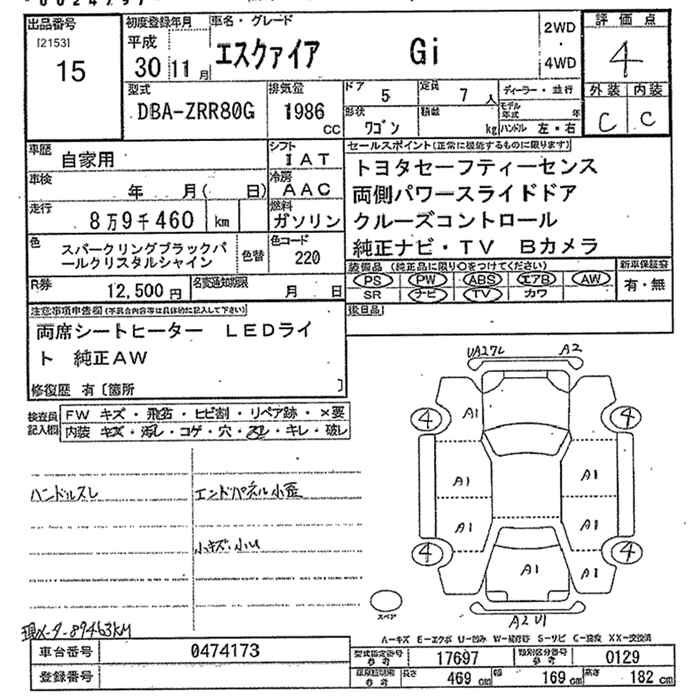 出品番号
[2153]
15
初度登録年月
平成
30 11 月
車名・グレード
エスクァイア Gi
2WD
・
4WD
評価点
4
外装 内装
C C
型式
DBA-ZRR80G
排気量
1986
CC
ドア 5
定員 7 人
形状 ワゴン
積載 kg
ディーラー・並行
モデル年式 年
ハンドル 左・右
車歴
自家用
シフト
IAT
車検
年 月( 日)
冷房
AAC
走行
8万9千460 km
燃料
ガソリン
色
スパークリングブラックパ
ールクリスタルシャイン
色替
色コード
220
R券
12,500 円
名変通知期限
月 日
セールスポイント(正常に機能するものに限ります)
トヨタセーフティーセンス
両側パワースライドドア
クルーズコントロール
純正ナビ・TV Bカメラ
装備品 (純正品に限り○をつけてください)
PS PW ABS エアB AW
SR ナビ TV カワ
新車保証書
有・無
後日品
注意事項申告欄(不具合内容等は具体的に記入して下さい)
両席シートヒーター LEDライ
ト 純正AW
修復歴 有〔箇所 〕
検査員
記入欄
FW キズ・飛石・ヒビ割・リペア跡・×要
内装 キズ・汚レ・コゲ・穴・スレ・キレ・破レ
ハンドルスレ
エンドパネル小歪
小キズ・小U
現メーター89463KM
UA27L A2
4 A1 4
A1 A1
A1 A1
4 A1 A1 4
スペア
A2 U1
A-キズ E-エクボ U-凹み W-補修跡 S-サビ C-腐食 XX-交換済
車台番号
0474173
登録番号
型式指定番号
参考
17697
類別区分番号
参考
0129
参考
長さ 469 cm
幅 169 cm
高さ 182 cm